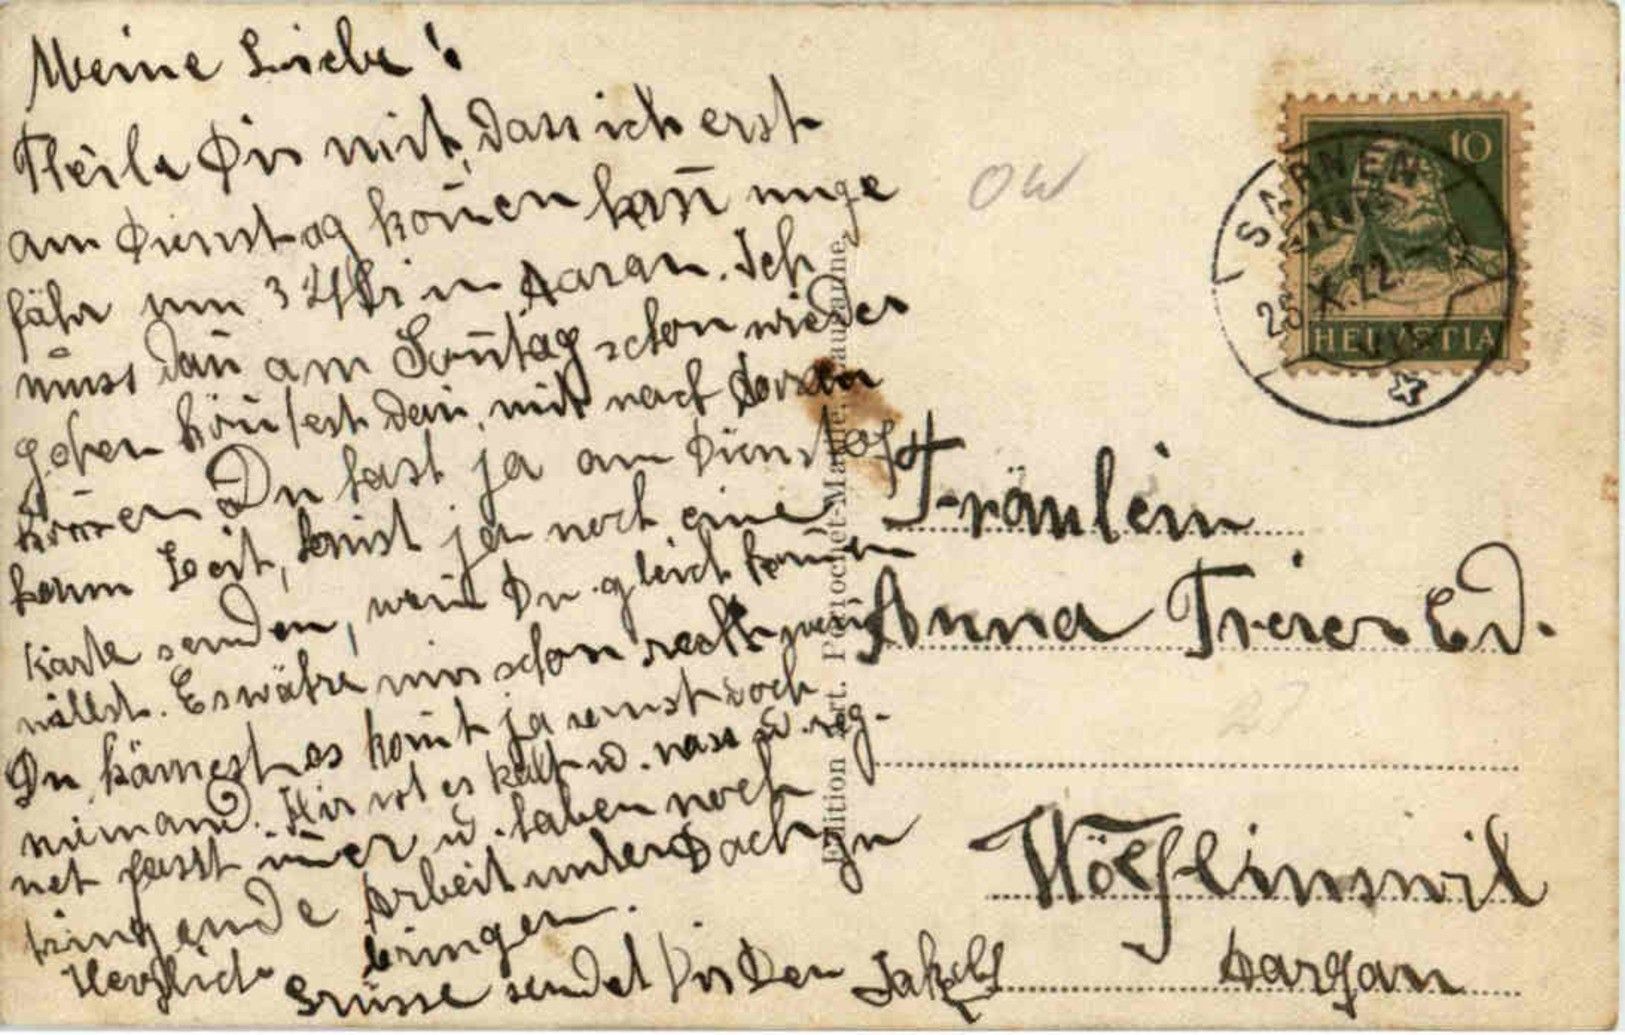 Meine Liebe!
Theile Dir mit, dass ich erst
am Dienstag kom̄en kan̄ unge
fähr um 3 Uhr in Aarau. Ich
muss dan̄ am Son̄tag schon wieder
gehen kön̄test dan̄ mit nach
Du hast ja am Dienstag
kaum Zeit, kan̄st ja noch eine
Karte senden, wen̄ Du gleich kom̄en
willst. Es währe mir schon recht wen̄
Du kämest es kom̄t ja sonst doch
niemand. Hir ist es kalt u. nass u. reg-
net fasst im̄er u. haben noch
tringende Arbeit unter Dach zu
bringen.
Herzlich Grüsse sendet Dir Dein Jakob
OW
10
SARNEN
25.X.22
HELVETIA
Fräulein
Anna Treier Ed.
27
Wölflinswil
Aargau
Edition Art. Perrochet-Matile, Lausanne.